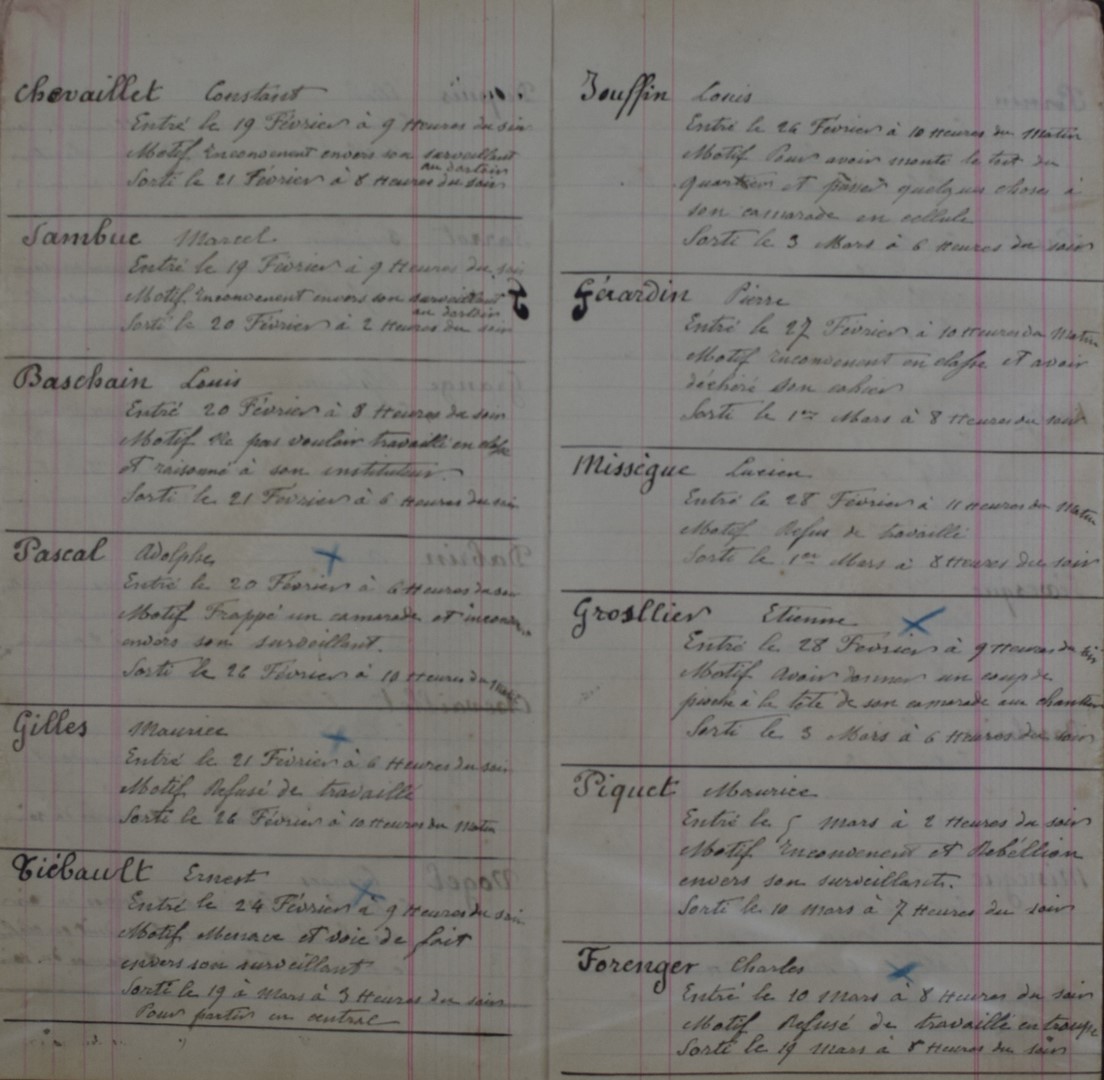 Chevaillet Constant
Entré le 19 Février à 9 Heures du soir
Motif Inconvenent envers son surveillant
au dortoir
Sorti le 21 Février à 8 Heures du soir
Sambuc Marcel
Entré le 19 Février à 9 Heures du soir
Motif Inconvenent envers son surveillant
au dortoir
Sorti le 20 Février à 2 Heures du soir
Baschain Louis
Entré 20 Février à 8 Heures du soir
Motif Ne pas vouloir travaillé en classe
et raisonné à son instituteur.
Sorti le 21 Février à 6 Heures du soir
Pascal Adolphe
Entré le 20 Février à 6 Heures du soir
Motif Frappé un camarade et
envers son surveillant.
Sorti le 26 Février à 10 Heures du Matin
Gilles Maurice
Entré le 21 Février à 6 Heures du soir
Motif Refusé de travaillé
Sorti le 26 Février à 10 Heures du Matin
Tiébault Ernest
Entré le 24 Février à 9 Heures du soir
Motif Menace et voie de fait
envers son surveillant
Sorti le 19 à Mars à 3 Heures du soir
Pour partir en central
Jouffin Louis
Entré le 26 Février à 10 Heures du Matin
Motif Pour avoir monté le toit du
quartier et passer quelques choses à
son camarade en cellule
Sorti le 3 Mars à 6 Heures du soir
Gérardin Pierre
Entré le 27 Février à 10 Heures du Matin
Motif Inconvenent en classe et avoir
déchiré son cahier
Sorti le 1er Mars à 8 Heures du soir
Missègue Lucien
Entré le 28 Février à 11 Heures du Matin
Motif Refus de travaillé
Sorti le 1er Mars à 8 Heures du soir
Grosllier Etienne
Entré le 28 Février à 9 Heures du soir
Motif Avoir donner un coup de
pioche à la tête de son camarade au chantier
Sorti le 3 Mars à 6 Heures du soir
Piquet Maurice
Entré le 5 Mars à 2 Heures du soir
Motif Inconvenent et Rebéllion
envers son surveillants.
Sorti le 10 Mars à 7 Heures du soir
Forenger Charles
Entré le 10 Mars à 8 Heures du soir
Motif Refusé de travaillé en troupe
Sorti le 19 Mars à 8 Heures du soir